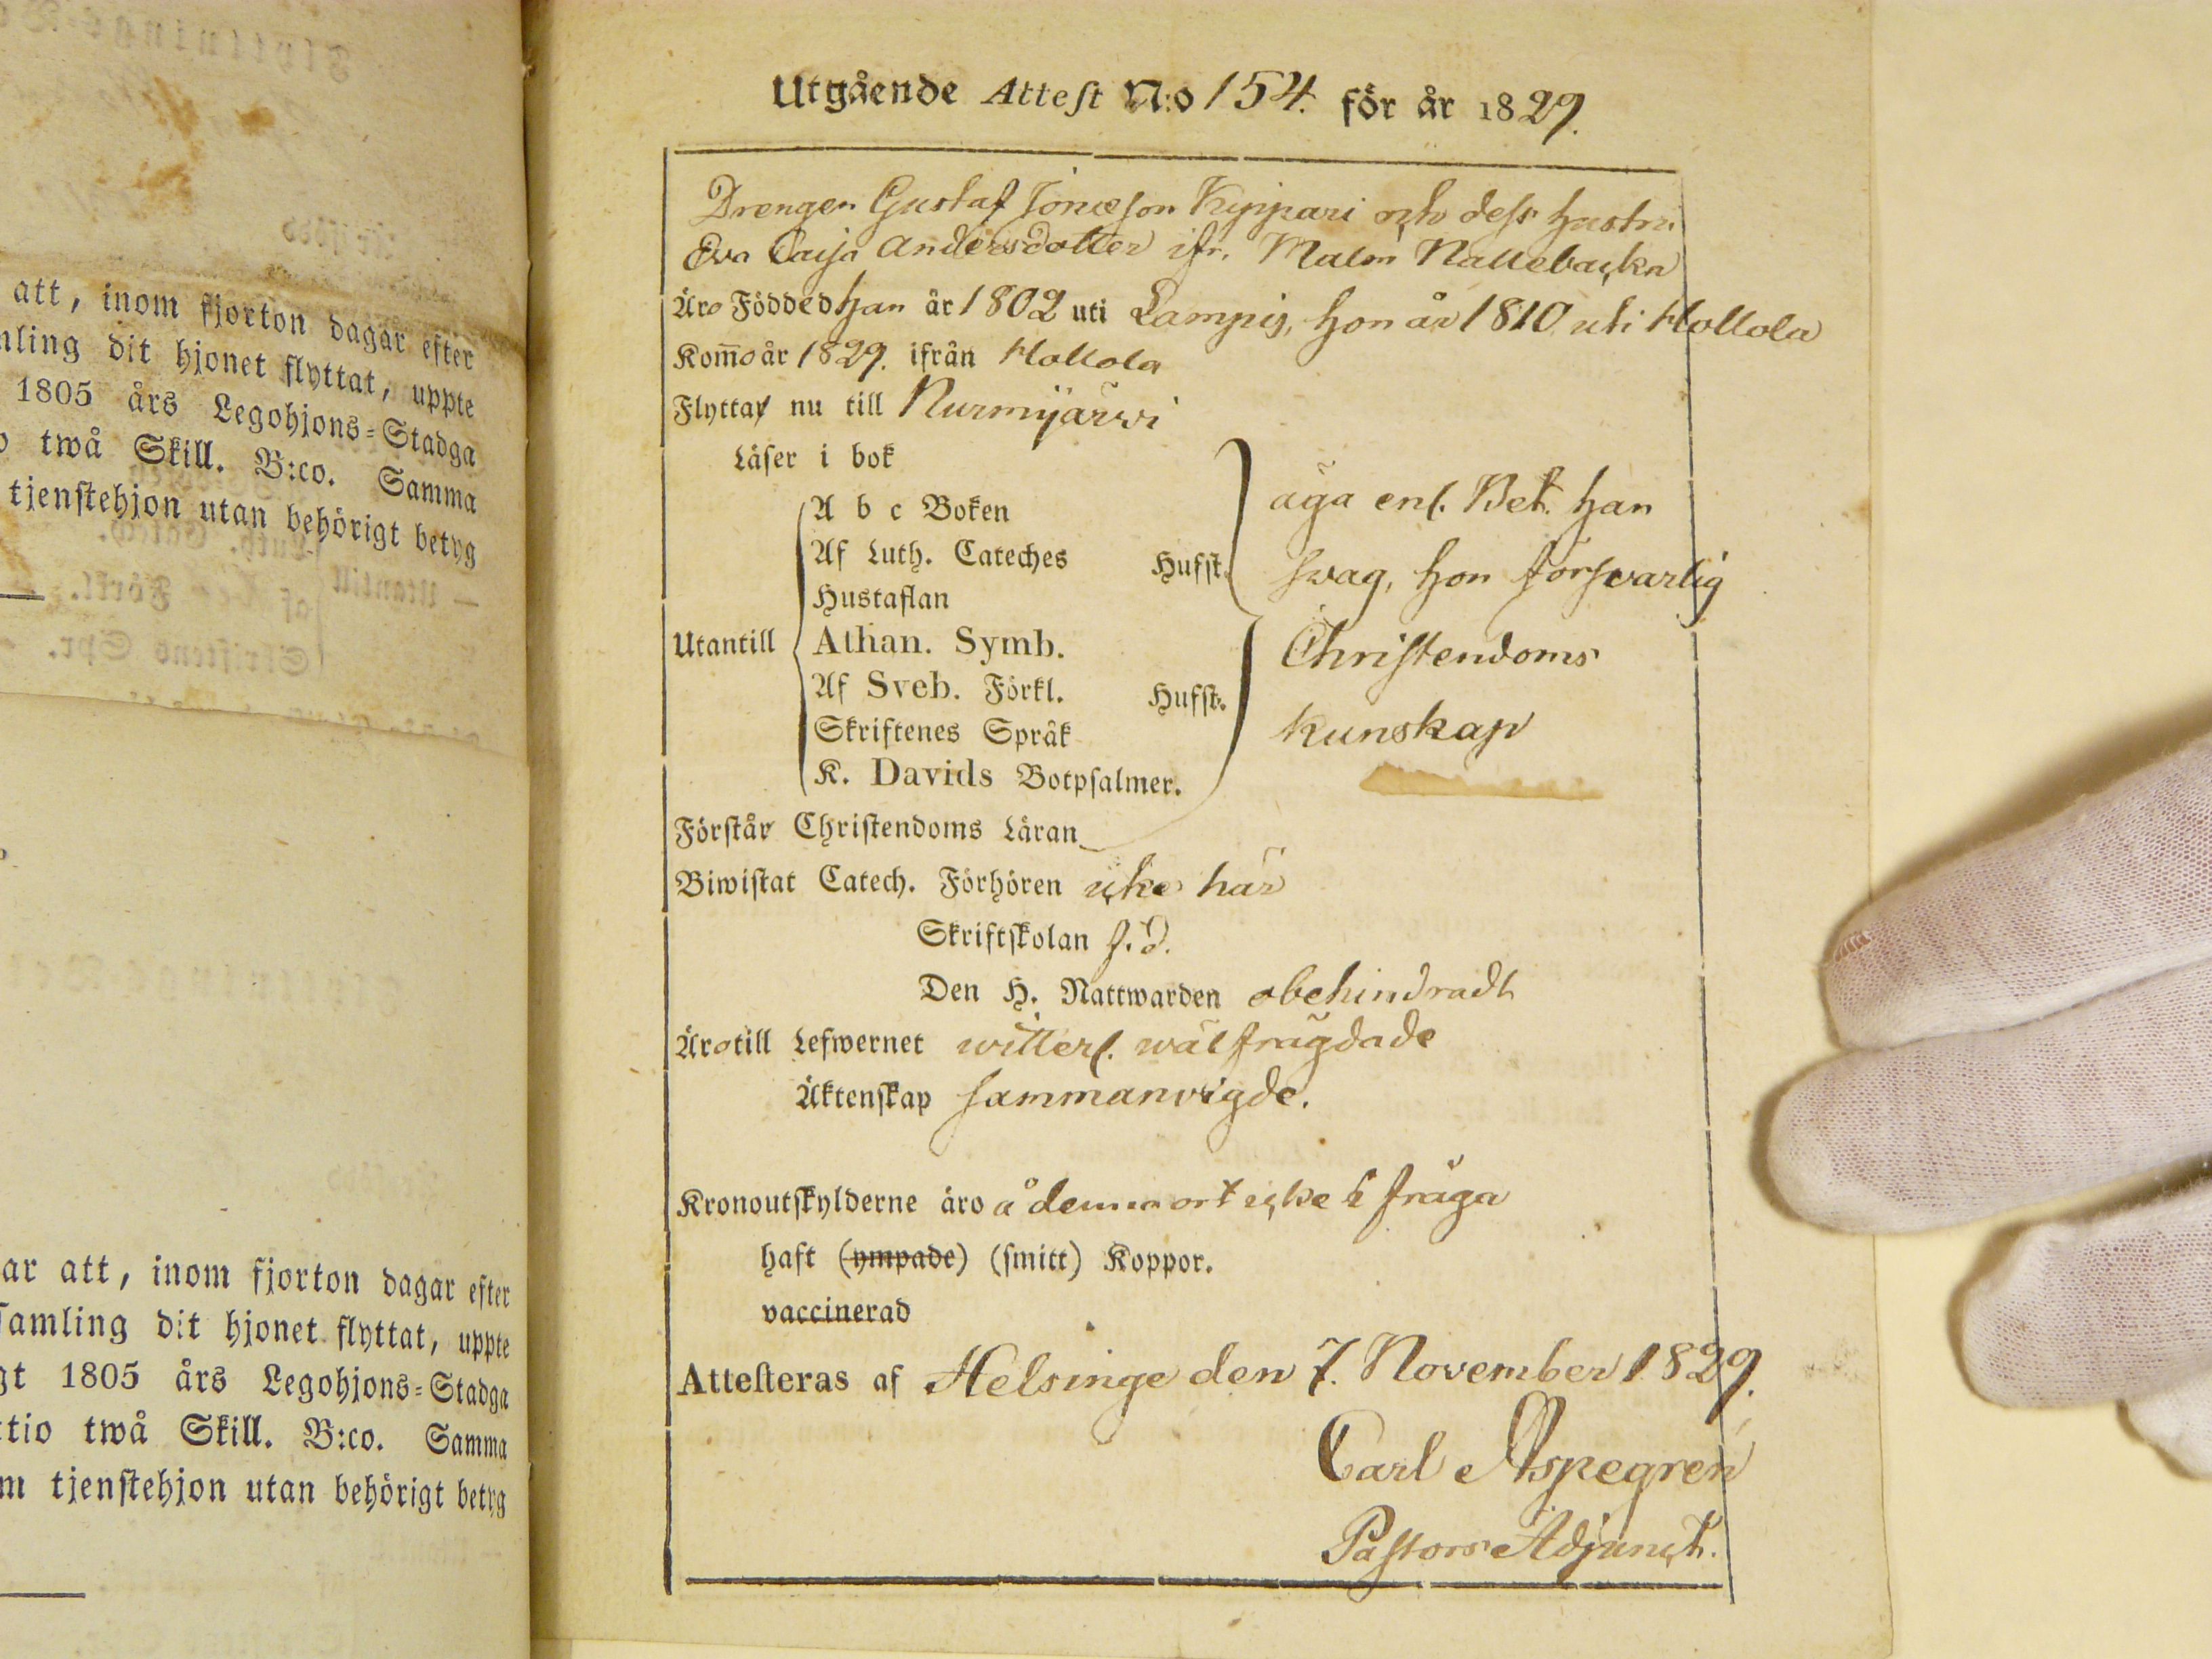 att, inom fjorton dagar efter
ling dit hjonet flyttat, uppte
1805 års Legohjons-Stadga
twå Skill. B:co. Samma
tjenstehjon utan behörigt betyg
ar att, inom fjorton dagar efter
samling dit hjonet flyttat, uppte
gt 1805 års Legohjons-Stadga
tio twå Skill. B:co. Samma
m tjenstehjon utan behörigt betyg
Utgående Attest N:o 154. för år 1829.
Drengen Gustaf Jonæson Kyppari och dess hustru
Eva Caisa Andersdotter ifr. Malm Nallebacka
Äro Födde d han år 1802 uti Lampis, hon år 1810 uti Hollola
Kommo år 1829. ifrån Hollola
Flytta nu till Nurmijärwi
Läser i bok
A b c Boken
Af Luth. Cateches Hufst.
Hustaflan
Utantill Athan. Symb.
Af Sveb. Förkl. Hufst.
Skriftenes Språk
K. Davids Botpsalmer.
Förstår Christendoms Läran
äga enl. Bet. han
swag, hon försvarlig
Christendoms
kunskap
Biwistat Catech. Förhören icke här
Skriftskolan s. d.
Den H. Nattwarden obehindradt
Äro till Lefwernet witterl. wälfrägdade
Äktenskap sammanvigde.
Kronoutskylderne äro å denna ort icke i fråga
haft (ympade) (smitt) Koppor.
vaccinerad
Attesteras af Helsinge den 7. November 1829.
Carl Aspegren
Pastors Adjunct.